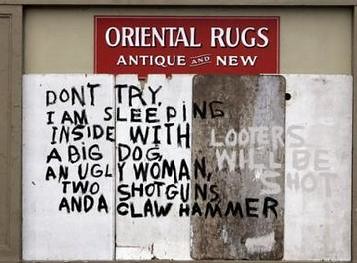 ORIENTAL RUGS
ANTIQUE AND NEW
DONT TRY.
I AM SLEEPING
INSIDE WITH
A BIG DOG,
AN UGLY WOMAN,
TWO SHOTGUNS
AND A CLAW HAMMER
LOOTERS
WILL BE
SHOT